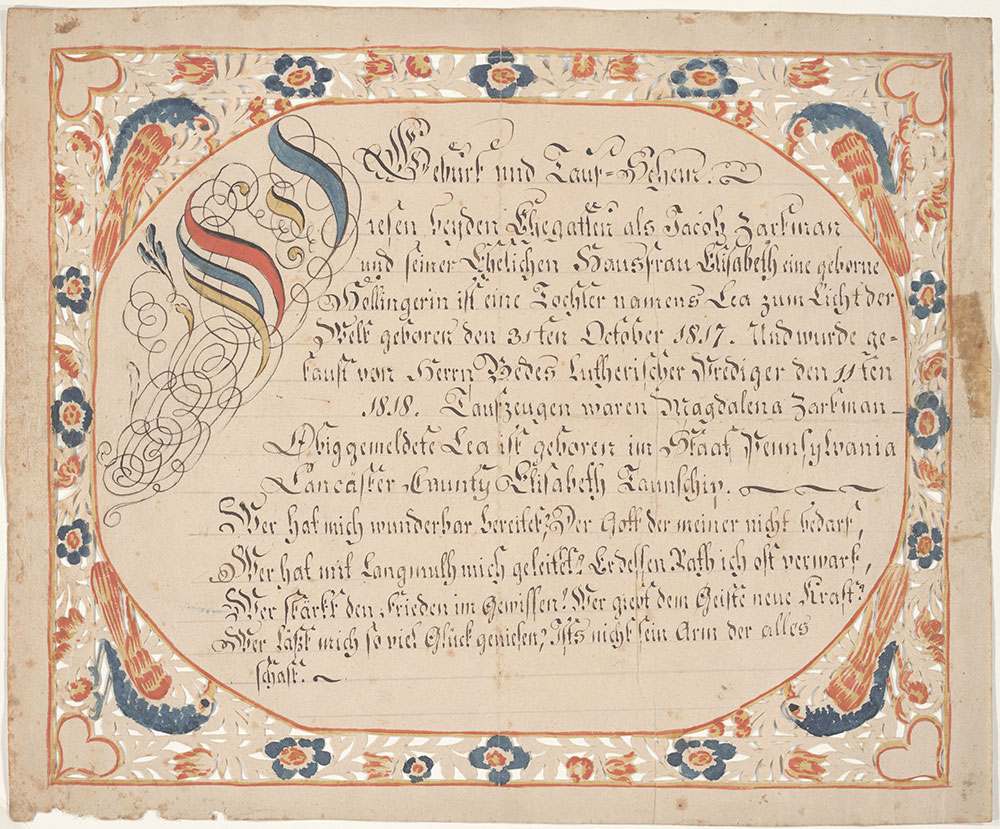 Geburt und Tauf-Schein.
Diesen beyden Ehegatten als Jacob Zarkman
und seiner Ehelichen Hausfrau Elisabeth eine geborne
Hollingerin ist eine Tochter namens Lea zum Licht der
Welt geboren den 31ten October 1817. Und wurde ge-
tauft von Herrn Lutherischer Prediger den 11ten
1818. Taufzeugen waren Magdalena Zarkman
Obiggemeldete Lea ist geboren im Staat Pennsylvania
Lancäster Caunty Elisabeth Taunschip.
Wer hat mich wunderbar bereitet? Der Gott der meiner nicht bedarf,
Wer hat mit Langmuth mich geleitet? Er dessen Rath ich oft verwarf,
Wer stärkt den Frieden im Gewissen? Wer giebt dem Geiste neue Kraft?
Wer läßt mich so viel Glück geniesen? Ists nicht sein Arm der alles
schaft.